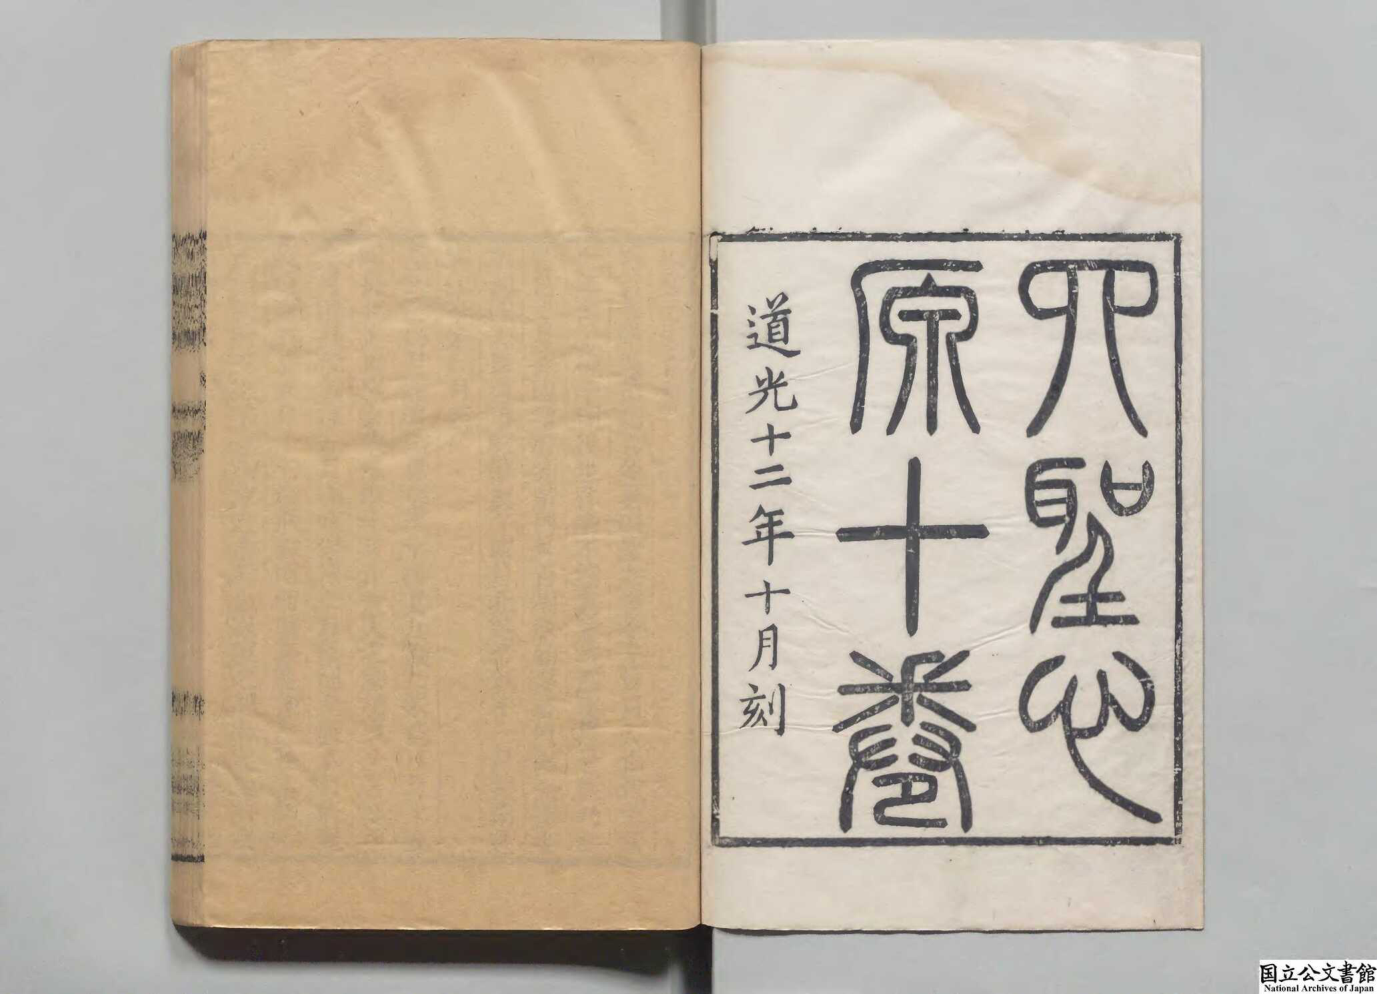 四聖心
原十卷
道光十二年十月刻
国立公文書館
National Archives of Japan